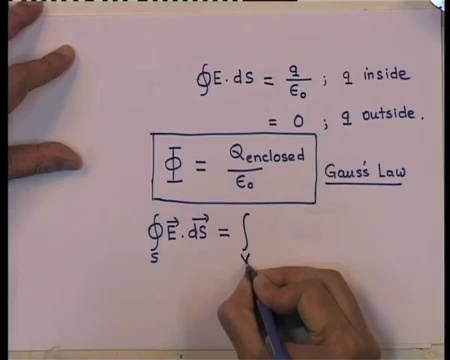 ∮E.ds = q/ε₀ ; q inside
= 0 ; q outside.
Φ = Qenclosed/ε₀ Gauss's Law
∮S E⃗.dS⃗ = ∫V